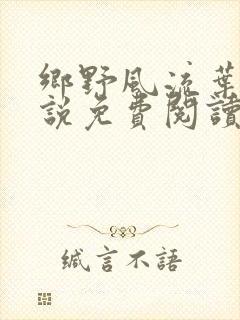 鄉野風流葉
說免費閱讀
緘言不語